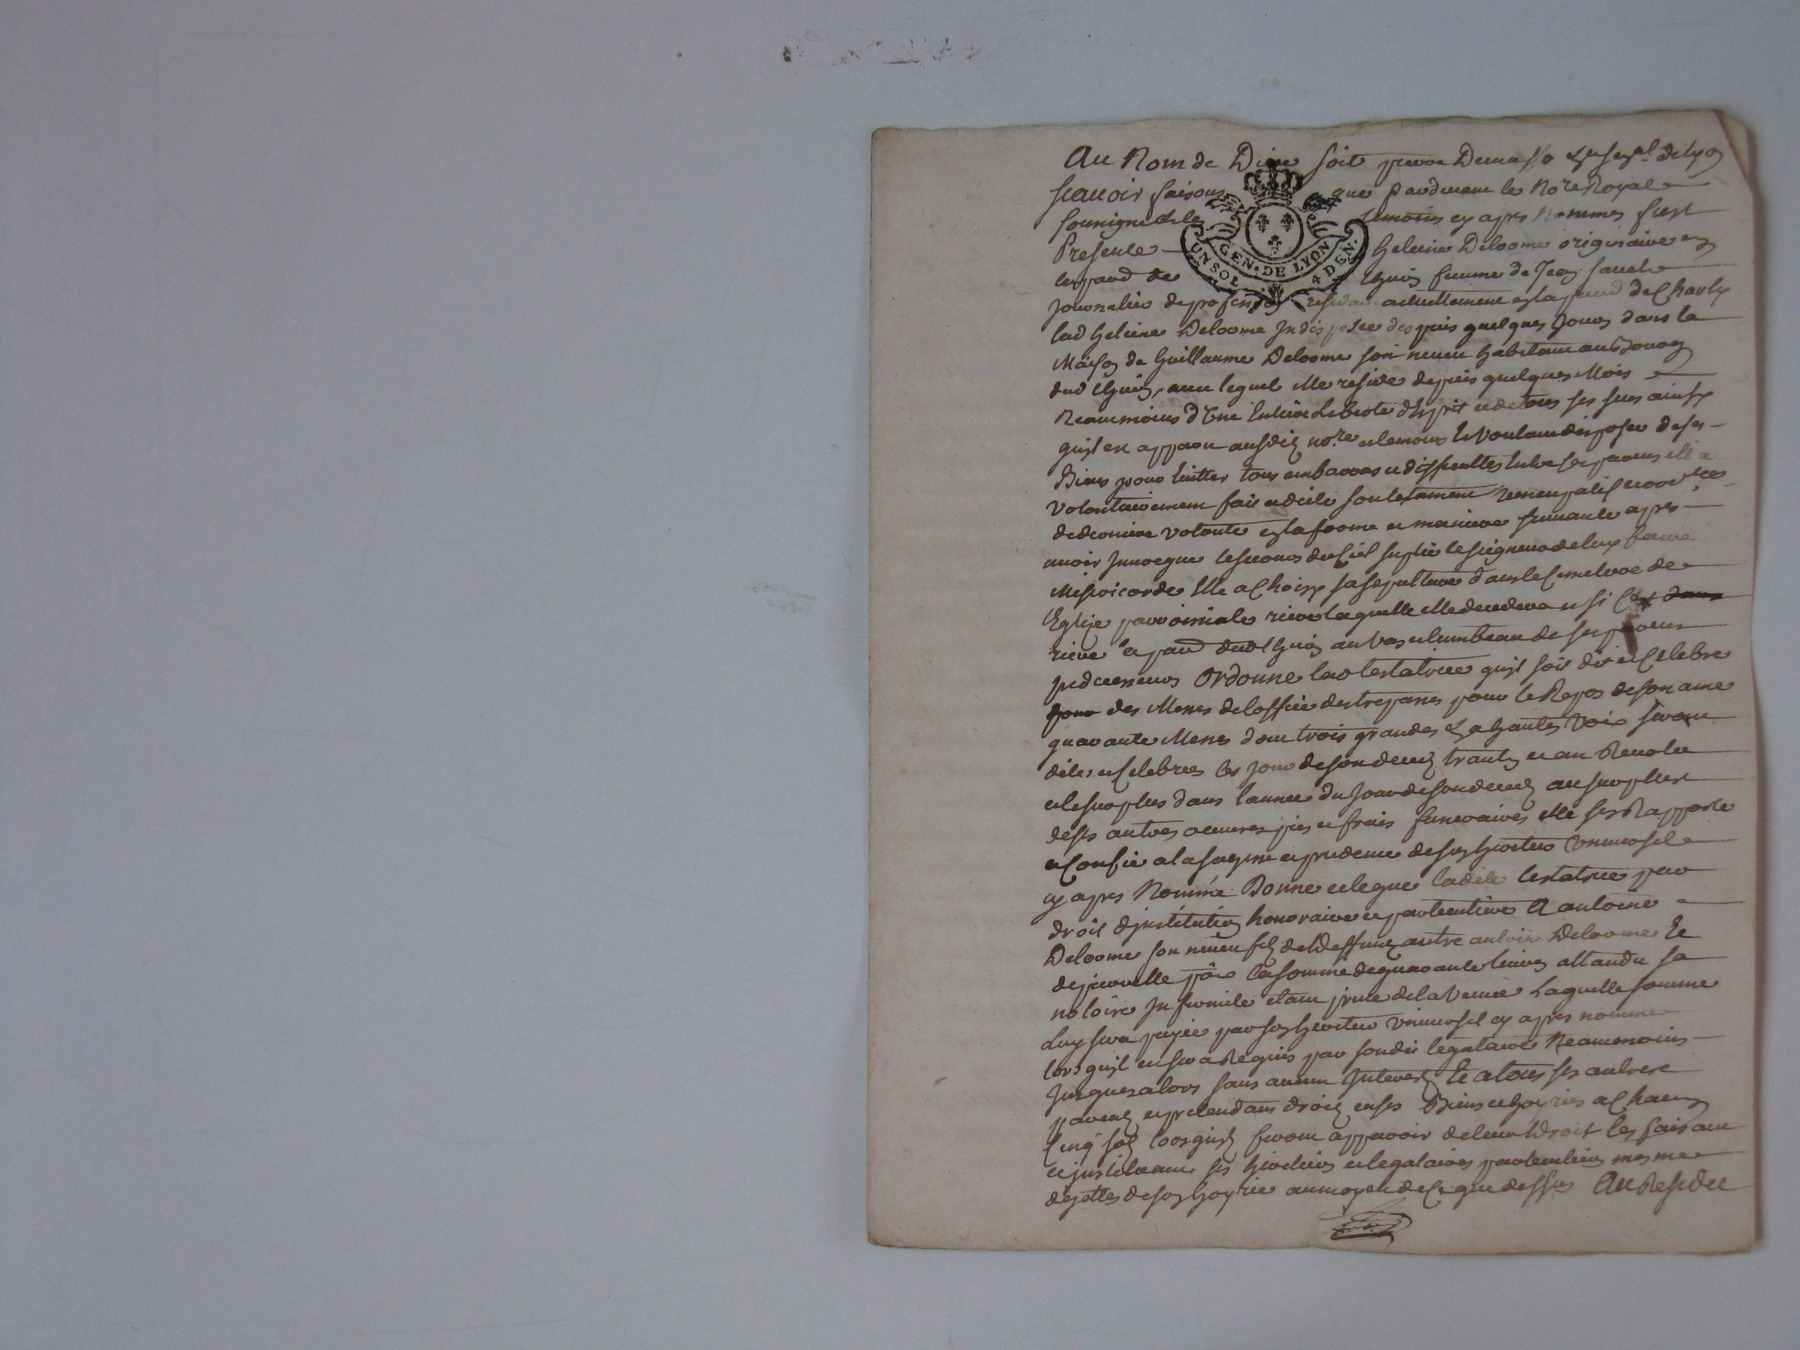 Au Nom de Dieu soit
scauoir faisons que pardeuant le No.re Royal
soussigné & les temoins cy apres Nommés s'est
Presente Heleine Delorme originaire
femme de Jean
Journalier de profession residant actuellement
lad Heleine Delorme Indisposée despuis quelques Jours dans la
Maison de Guillaume Delorme son neueu habitant au Bourg
auec lequel elle reside depuis quelques Mois
Neanmoins d'Une Entiere Liberté d'Esprit et de tous ses sens ainsy
quil en appert ausdit no.re et temoins Et Voulant disposer de ses
Biens pour Euitter tous embarras et difficultés Entre ses parens elle a
volontairement fait et dicté son testament nuncupatif
de derniere volonté en la forme et maniere suiuante apres
auoir Inuoqué le secours du Ciel suplié le seigneur de luy faire
Misericorde Elle a Choisy sa sepulture dans le Cimetiere de
l'Eglise parroissiale riere laquelle elle decedera et si C'est dans
riere la par. au Vas et tumbeau de ses
predecesseurs Ordonne lad testatrice quil soit dit et Celebré
pour des Messes de loffice des trepassés pour le Repos de son ame
quarante Messes dont trois grandes & a hautes voix seront
dites et Celebrées les jour de son deces, et au Reuolu
et le surplus dans l'année du jour de son deces au surplus
de ses autres oeuures pies et frais funeraires elle s'en Rapporte
et Confie a la sagesse et prudence de son heritier Uniuersel
cy apres Nommé Donne et legue ladite testatrice par
droit d'institution honoraire et particuliere A antoine
Delorme son neueu fils de deffunt autre antoine Delorme Et
la somme de quarante liures attandu sa
notoire Infirmité Laquelle somme
Luy sera payée par son heritier Uniuersel cy apres nommé
lors quil en sera Requis par sondit legataire Neanmoins
Jusques alors sans aucun Interest Et a tous ses autres
parens et pretendans droit en ses Biens et hoyries a Chacun
Cinq sols lorsquils feront apparoir de leur Droit les faisant
et instituant ses heritiers et legataires particuliers mesme
dejettes de son hoyrie au moyen de Ce que dessus Au Residu
GEN. DE LYON
UN SOL 4 DEN.